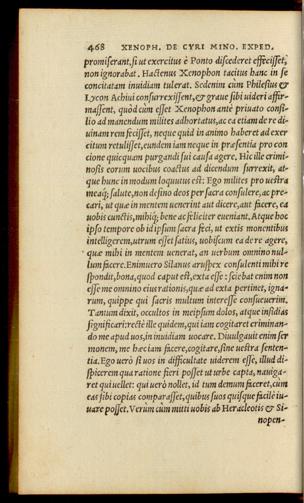 468 XENOPH. DE CYRI MINO. EXPED.
promiserant, si ut exercitus è Ponto discederet effecisset,
non ignorabat. Hactenus Xenophon tacitus hanc in se
concitatam inuidiam tulerat. Sed enim cùm Philesius &
Lycon Achiui consurrexissent, & graue sibi uideri affir-
massent, quòd cùm esset Xenophon antè priuato consi-
lio ad manendum milites adhortatus, ac ea etiam de re di-
uinam rem fecisset, neque quid in animo haberet ad exer
citum retulisset, eundem iam neque in præsentia pro con
cione quicquam purgandi sui causa agere. Hic ille crimi-
nosis eorum uocibus coactus ad dicendum surrexit, at-
que hunc in modum loquutus est: Ego milites pro uestra
meaq; salute, non desino deos per sacra consulere, ac pre-
cari, ut quæ in mentem uenerint aut dicere, aut facere, ea
uobis cunctis, mihiq; bene ac feliciter eueniant. Atque hoc
ipso tempore ob id ipsum sacra feci, ut extis monentibus
intelligerem, utrum esset satius, uobiscum ea de re agere,
quæ mihi in mentem uenerat, an uerbum omnino nul-
lum facere. Enimuero Silanus aruspex consulenti mihi re
spondit, bona, quod caput est, exta esse: sciebat enim non
esse me omnino eius rationis, quæ ad exta pertinet, igna-
rum, quippe qui sacris multum interesse consueuerim.
Tantum dixit, occultos in meipsum dolos, atque insidias
significari: rectè ille quidem, qui iam cogitaret criminan-
do me apud uos, in inuidiam uocare. Diuulgauit enim ser
monem, me hæc iam facere, cogitare, sine uestra senten-
tia. Ego uerò si uos in difficultate uiderem esse, illud di-
spicerem qua ratione fieri posset ut urbe capta, nauiga-
ret qui uellet: qui uerò nollet, id tum demum faceret, cùm
eas sibi copias comparasset, quibus suos quisque facilè iu-
uare posset. Verùm cùm mitti uobis ab Heracleotis & Si-
nopen-